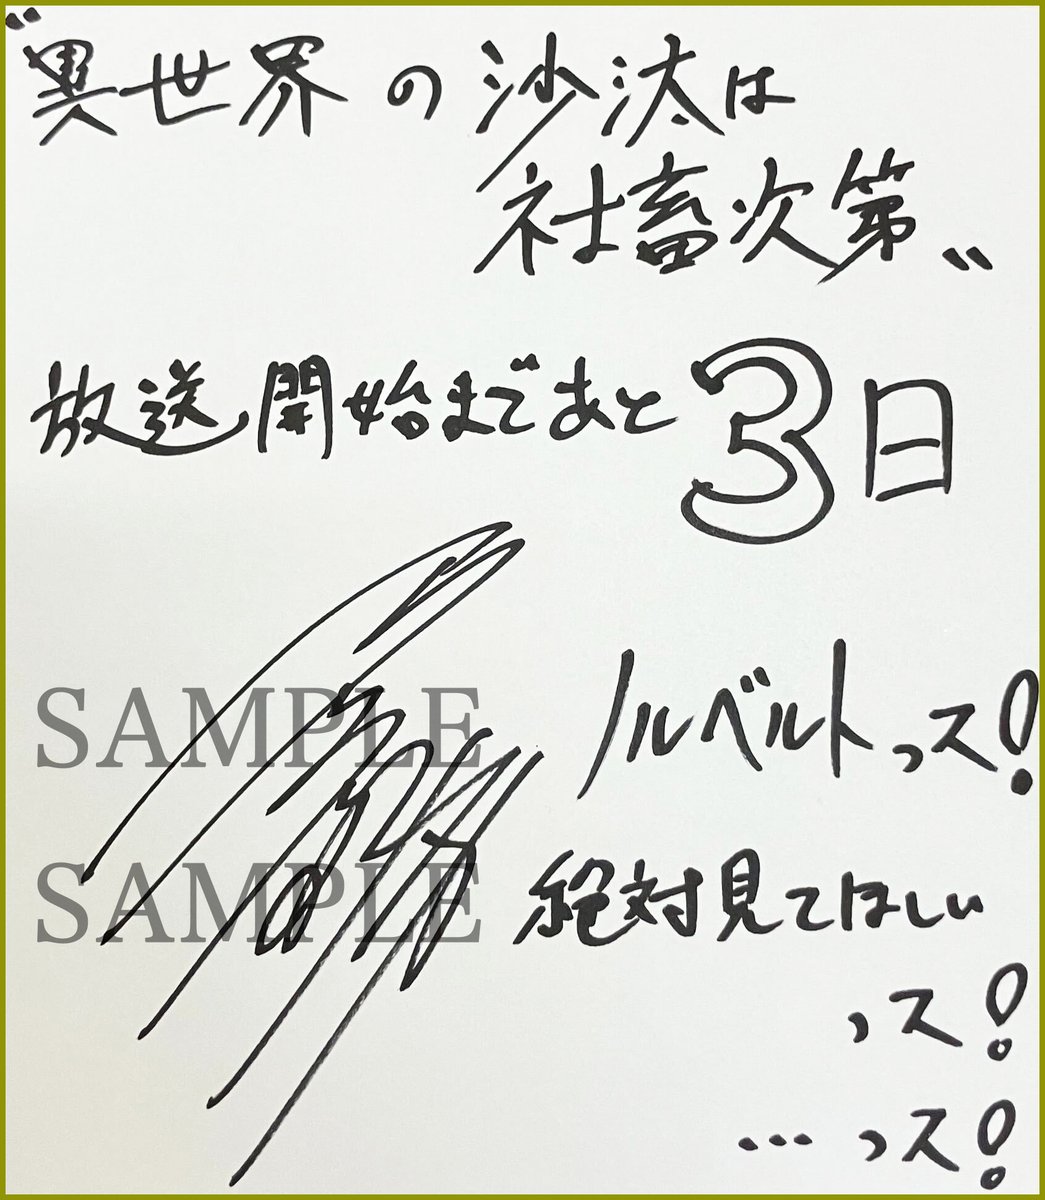 "異世界の沙汰は
社畜次第"
放送開始まであと3日
ノルベルトっス!
絶対見てほしい
っス!
…っス!
SAMPLE
SAMPLE